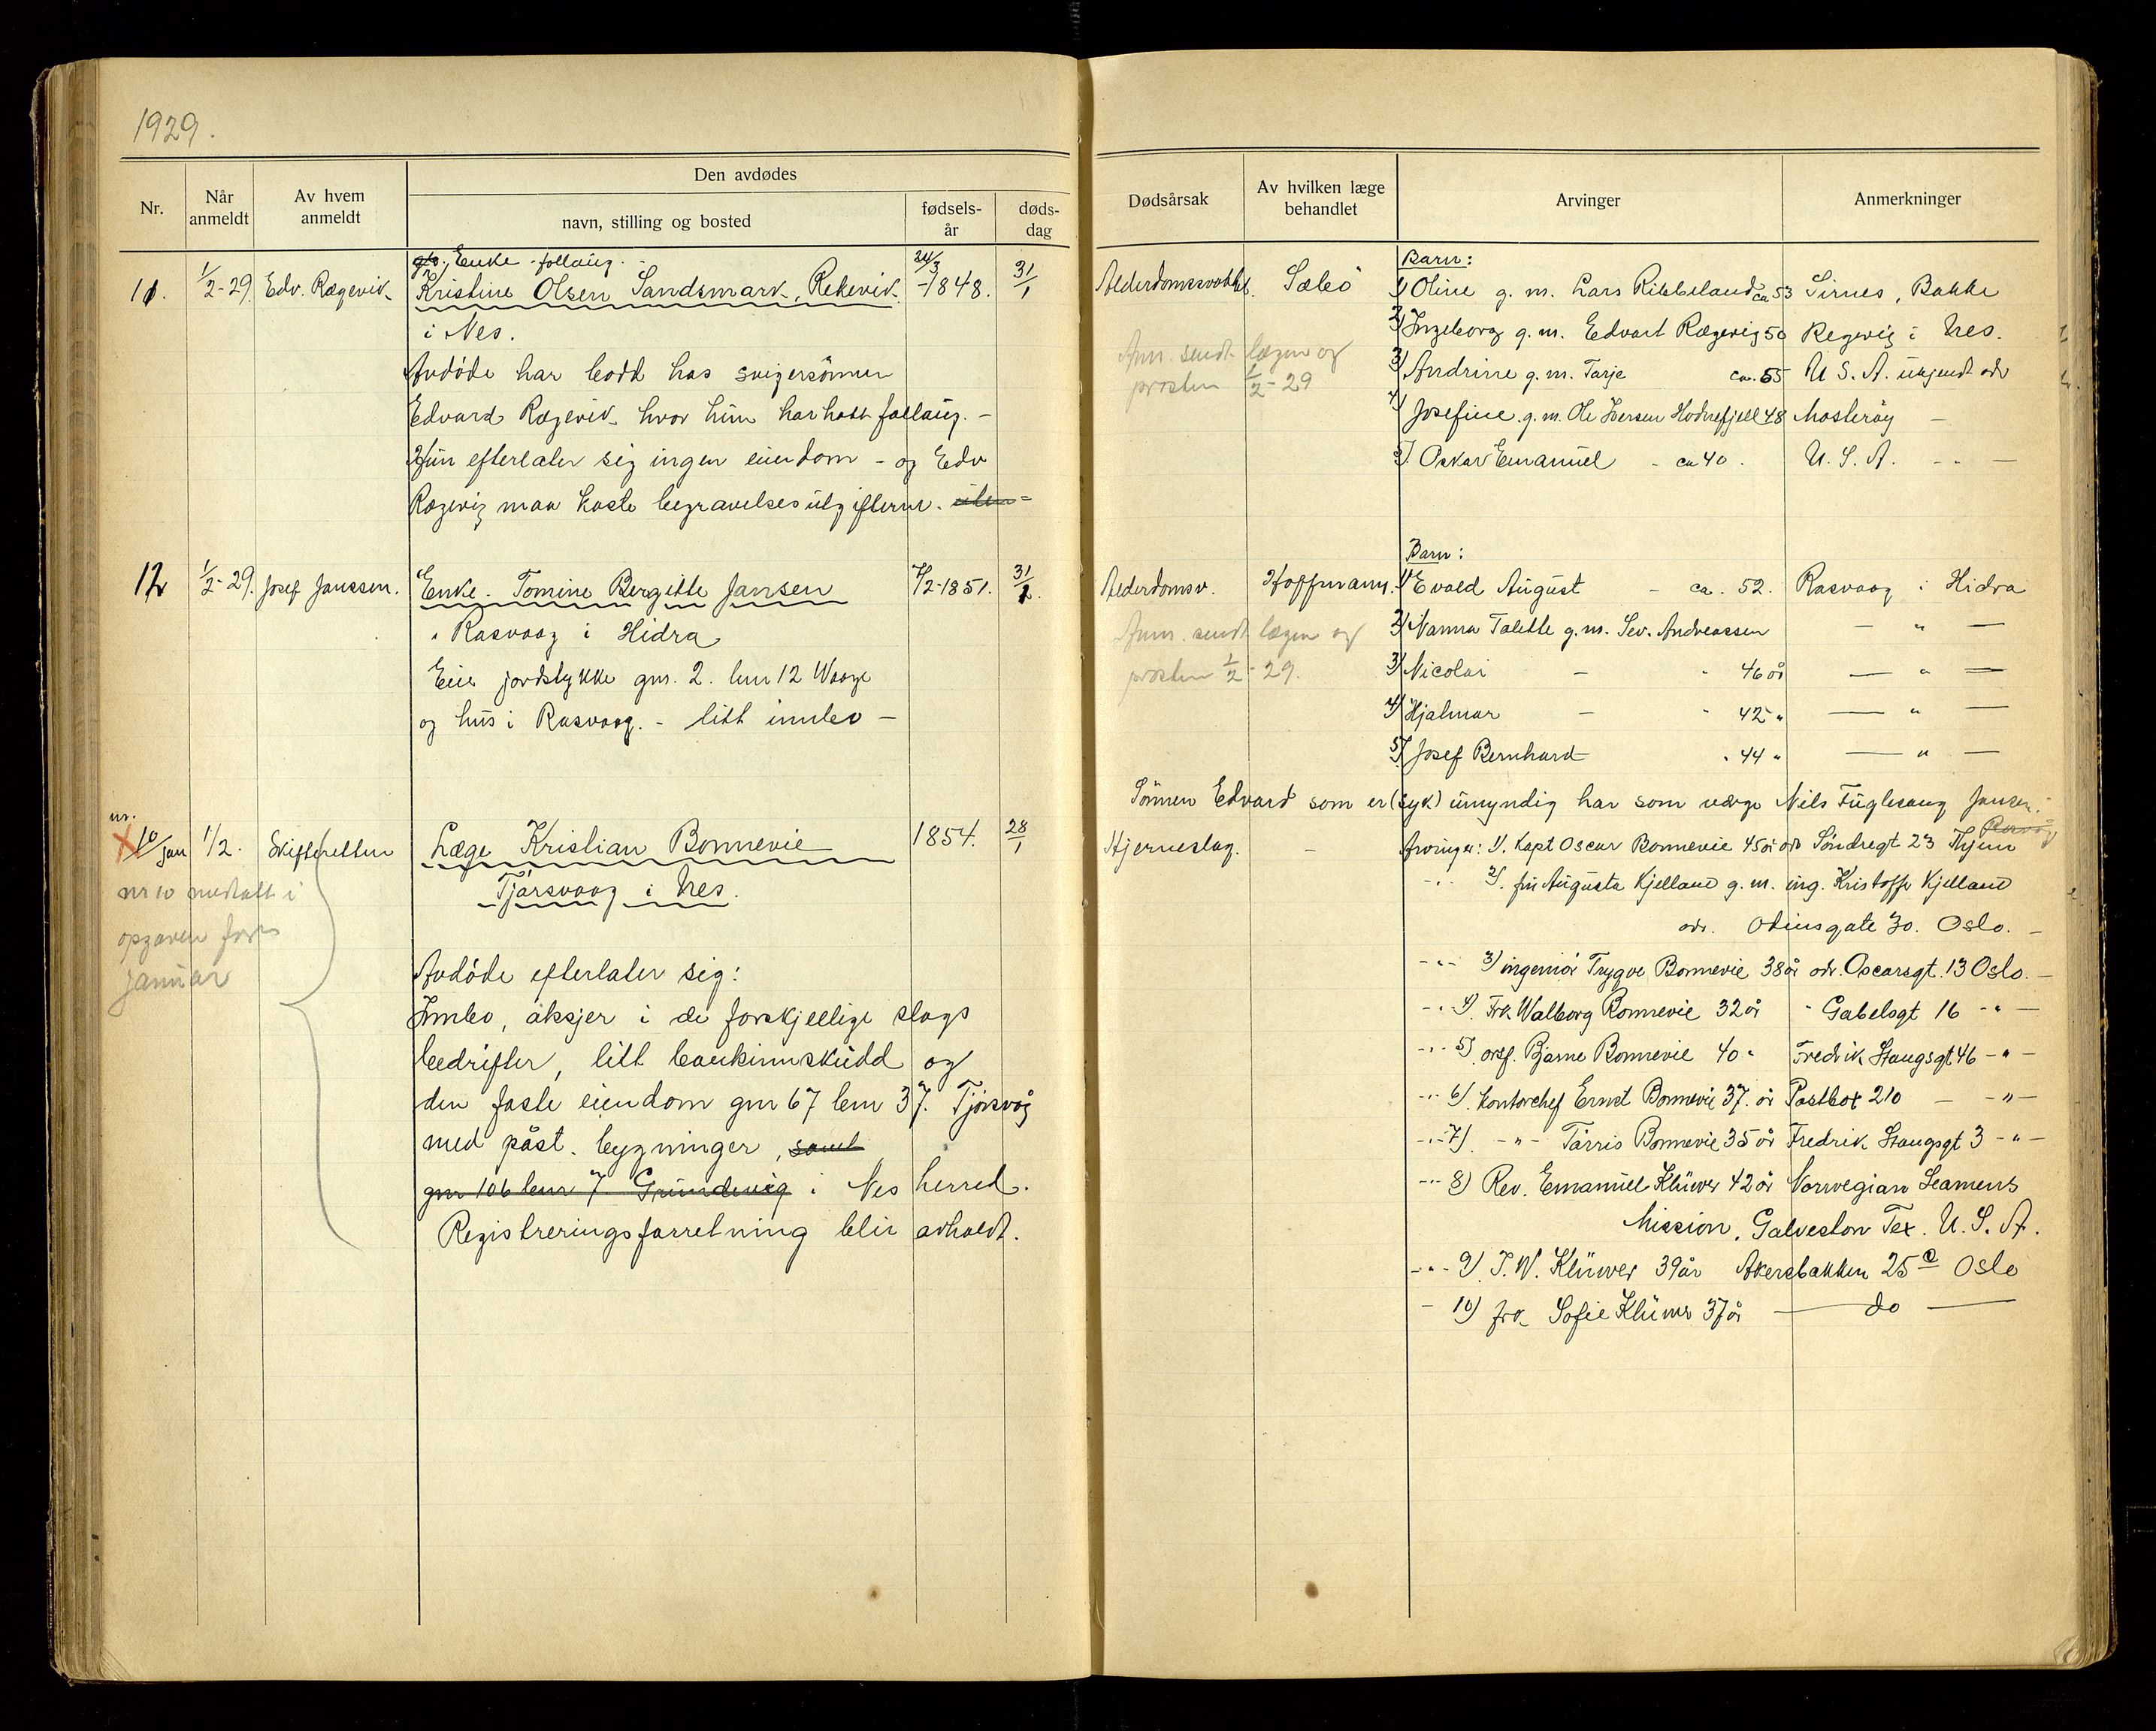 1929.
Nr.
Når anmeldt
Av hvem anmeldt
Den avdødes
navn, stilling og bosted
fødsels-år
døds-dag
Dødsårsak
Av hvilken læge behandlet
Arvinger
Anmerkninger
11. 1/2-29. Edv. Rægevik. Enke - follaug. 24/3 31/1
Kristine Olsen Sandsmark, Rekevik -1848.
i Nes.
Avdöde har bodd hos svigersönnen
Edvard Rægevik hvor hun har hatt follaug. -
Hun efterlater sig ingen eiendom - og Edv
Rægevig maa koste begravelsesutgifterne. uten -
Alderdomssvakhet. Sæbö
Anm. sendt lægen og
prosten 1/2-29
Barn:
1) Oline g. m. Lars Ribbeland ca 53 Sirnes, Bakke
2) Ingeborg g. m. Edvart Rægevig 50 Regevig i Nes.
3) Andrine g. m. Tarje ca. 55 U. S. A. ukjendt adr
4) Josefine g. m. Ole Iversen Hodnefjell 48 Mosteröy -
5) Oskar Emanuel - ca 40. U. S. A. - -
12 1/2-29. Josef Janssen. Enke. Tomine Bergitte Jansen 7/2-1851. 31/1.
Rasvaag i Hidra
Eier jordstykke gnr. 2. bnr 12 Waage
og hus i Rasvaag. - litt innbo -
Alderdomsv. Hoffmann.
Anm. sendt lægen og
prosten 1/2-29.
Barn:
1) Evald August - ca. 52. Rasvaag i Hidra
2) Nanna Talette g. m. Sev. Andreassen - " -
3) Nicolai - " 46 år - " -
4) Hjalmar - " 42 " - " -
5) Josef Bernhard " 44 " - " -
Sönnen Edvard som er (syk) umyndig har som værge Nils Fuglesang Jansen.
Rasvåg
nr. 10/jan 1/2. Skifteretten Læge Kristian Bonnevie 1854. 28/1
Tjörsvaag i Nes.
nr 10 medtatt i
opgaven for
januar
Avdöde efterlater sig:
Innbo, aksjer i de forskjellige slags
bedrifter, litt bankinnskudd og
den faste eiendom gnr 67 bnr 37. Tjörsvåg
med påst. bygninger, samt
gnr 106 bnr 7. Grundevig i Nes herred.
Registreringsforretning blir avholdt.
Hjerneslag. -
Arvinger: 1). Kapt Oscar Bonnevie 45 år adr Söndregt 23 Thjem
-"- 2). fru Augusta Kjelland g. m. ing. Kristoffer Kjelland
adr. Odinsgate 30. Oslo. -
-"- 3) ingeniör Trygve Bonnevie 38 år adr. Oscarsgt. 13 Oslo. -
-"- 4). Frk Walborg Bonnevie 32 år " Gabelsgt 16 -"-
-"- 5) orsf. Bjarne Bonnevie 40 " Fredrik Stangsgt 46 -"-
-"- 6). Kontorchef Ernst Bonnevie 37. år Postbox 210 - -"-
-"- 7). -"- Tårris Bonnevie 35 år Fredrik Stangsgt 3 -"-
-"- 8) Rev. Emanuel Klüwer 42 år Norwegian Seamens
Mission, Galveston Tex. U. S. A.
-"- 9) J. W. Klüwer 39 år Akersbakken 25 e Oslo
- 10) frk Sofie Klüwer 37 år - do -